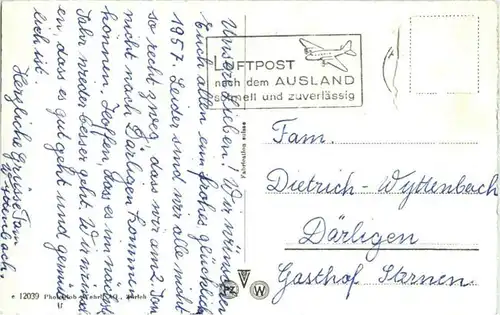 Unsere Lieben! Wir wünschen
Euch allen ein frohes glücklich
1957. Leider sind wir alle nicht
so recht zweg, dass wir am 2. Jan
nicht nach Därligen kommen
können, hoffen, dass es im nächst
Jahr wieder besser geht. Wir
en, dass es gut geht und gemüt
lich ist.
Herzliche Grüsse Fam
Wyttenbach.
LUFTPOST
nach dem AUSLAND
schnell und zuverlässig
Fam.
Dietrich-Wyttenbach
Därligen
Gasthof Sternen.
e 12039 Photoglob-Wehrli AG., Zürich
PZ W